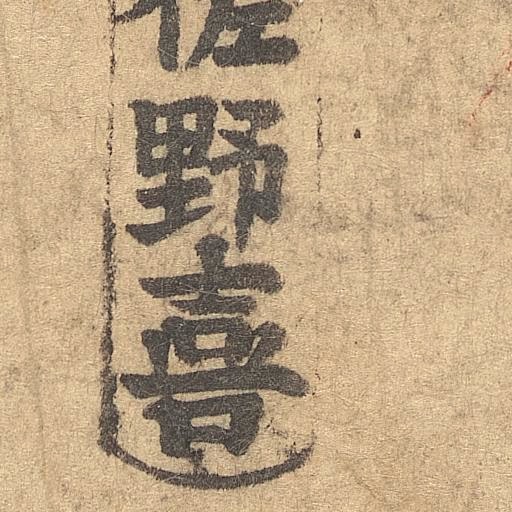 佐野喜